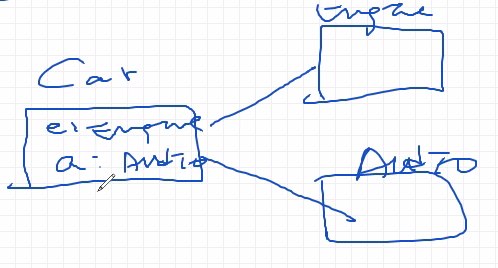 Engine
Car
e: Engine
a: Audio
Audio